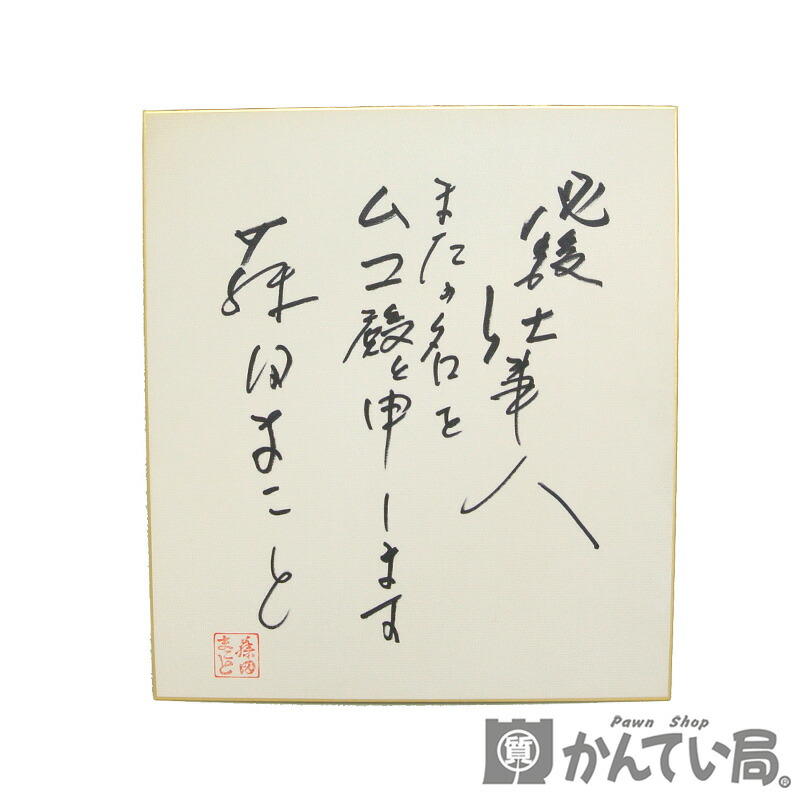 必殺仕事人
またの名を
ムコ殿と申します
藤田まこと
藤田
まこと
Pawn Shop
質 かんてい局
®